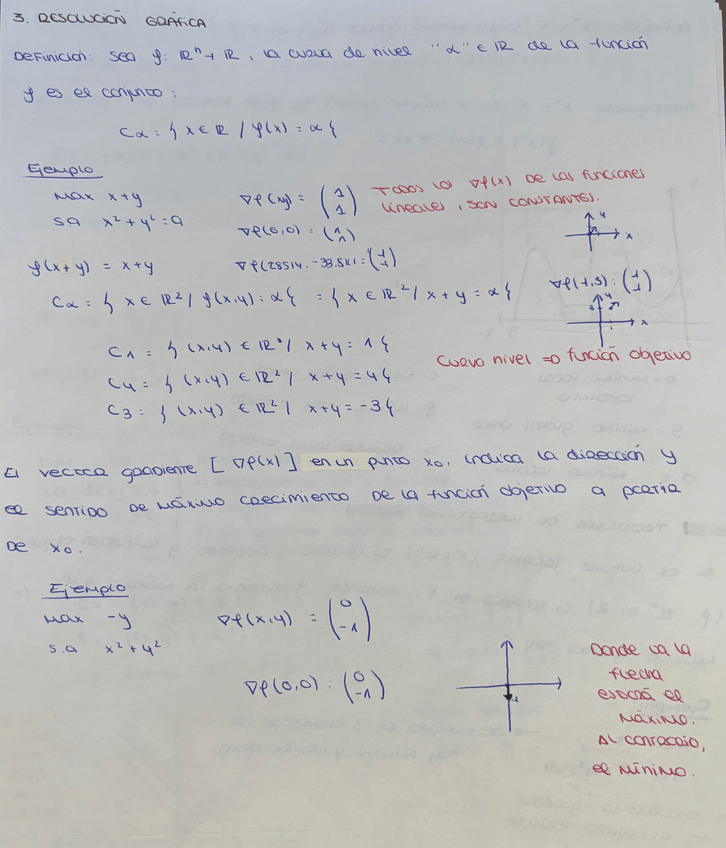 3. RESOLUCIÓN GRÁFICA
Definición: sea f: ℝⁿ → ℝ, la curva de nivel "α" ∈ ℝ de la función
f es el conjunto:
Cα = { x ∈ ℝ / f(x) = α {
Ejemplo
Max x+y
sa x² + y² = 9
∇f(xy) = (1 1)
∇f(0,0) = (1 1)
Todos los ∇f(x) de las funciones
lineales, son constantes.
f(x+y) = x+y
∇f(28514, -33.5x1 = (1 1)
y
x
∇f(1,3) : (1 1)
Cα = { x ∈ ℝ² / f(x,y) = α { = { x ∈ ℝ² / x + y = α {
y
3
x
C₁ = { (x,y) ∈ ℝ² / x+y = 1 {
C₄ = { (x,y) ∈ ℝ² / x+y = 4 {
C₃ = { (x,y) ∈ ℝ² / x+y = -3 {
Curva nivel ⇒ función objetivo
El vector gradiente [∇f(x)] en un punto x₀, indica la dirección y
el sentido de máximo crecimiento de la función objetivo a partir
de x₀.
Ejemplo
Max -y
s.a x² + y²
∇f(x,y) = (0 -1)
∇f(0,0) : (0 -1)
-1
Donde va la
flecha
estará el
máximo.
Al contrario,
el mínimo.